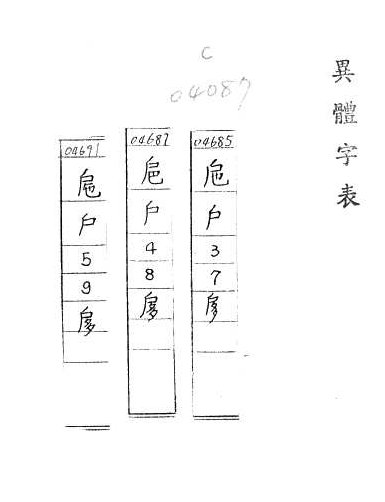 異體字表
C
04087
04685
戶
3
7
扅
04687
戶
4
8
扅
04691
戶
5
9
扅